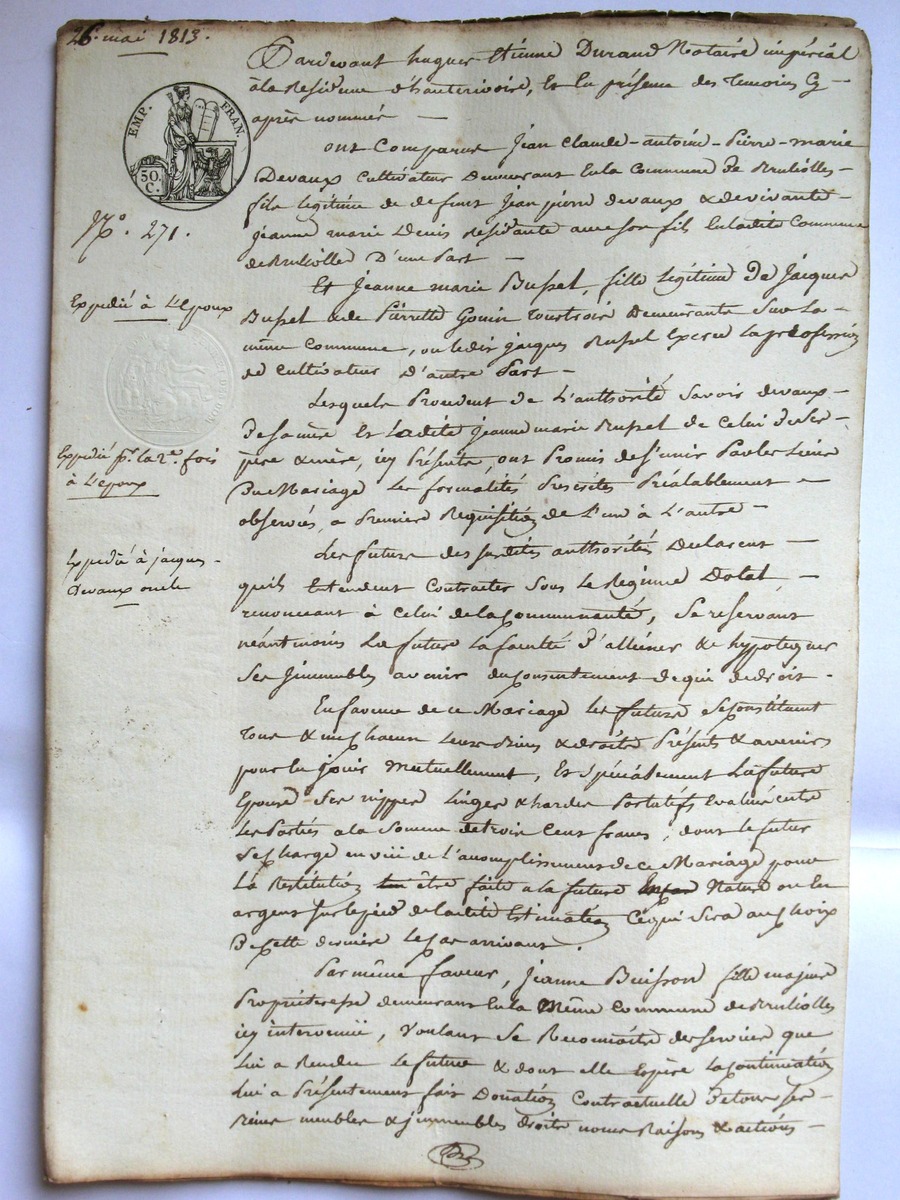 26. mai 1813.
EMP. FRAN.
50 C.
N.° 271.
Expedié à L'Epoux
Expedié pr. la 2e. fois
à L'epoux
Expedié à jacques
Devaux oncle
Pardevant hugues Etienne Durand Notaire impérial
à la Residence d'hauterivoire, Et En présence des Temoins Cy
après nommés
ont Comparus Jean Claude-antoine-Pierre-marie
Devaux Cultivateur Demeurant En la Commune de Brulliolles
fils legitime de defunt Jean pierre devaux & de vivante
Jeanne marie Denis Résidante avec son fils En ladite Commune
de Brulliolles D'une Part
Et Jeanne marie Bussel, fille légitime de Jacques
Bussel & de Pierrette Gonin Demeurante Sur La
même Commune, ou ledit jacques Bussel Exerce La profession
de Cultivateur D'autre Part
Lesquels Procedent de L'authorité Savoir devaux
De sa mère Et Ladite Jeanne marie Bussel de Celui De Ses
père & mère, icy Présents, ont Promis de S'unir Par les Liens
Du Mariage Les formalités Prescrites Préalablement
observées, a Premiere Requisition de L'un à L'autre
Les futurs des susdites authorités Declarent
qu'ils Entendent Contracter Sous Le Regime Dotal
renonceant à Celui de la Communauté, Se réservant
néantmoins La future La faculté D'alliéner & hypotequer
Ses Jmmeubles avenir du Consentement de qui de droit
En faveur de ce Mariage Les futurs Se Constituent
Tous & un Chacun Leurs Biens & droits Présents & avenirs
pour En Jouir Mutuellement, Et Spécialement La future
Epouse Ses nippes Linges & hardes Portatifs Evalués entre
Les Parties a la Somme de trois Cent francs, dont le futur
Se Charge en vue de L'accomplissement de ce Mariage pour
La Restitution être faite a la future Nature ou En
argent Sur le pied de ladite Estimation Ce qui Sera au Choix
De Cette derniere Le Cas arrivant.
Par même faveur, Jeanne Buisson fille majeure
Propriéteresse demeurant En la Même Commune de Brulliolles
icy intervenue, Voulant Se Reconnaître des Services que
Lui a Rendu Le futur & dont elle Espère La Continuation
Lui a Présentement fait Donation Contractuelle De tous Ses
Biens meubles & jmmeubles droits noms Raisons & actions